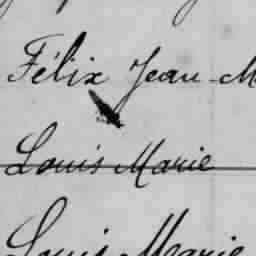 Félix Jean-M
Louis Marie
Louis Marie